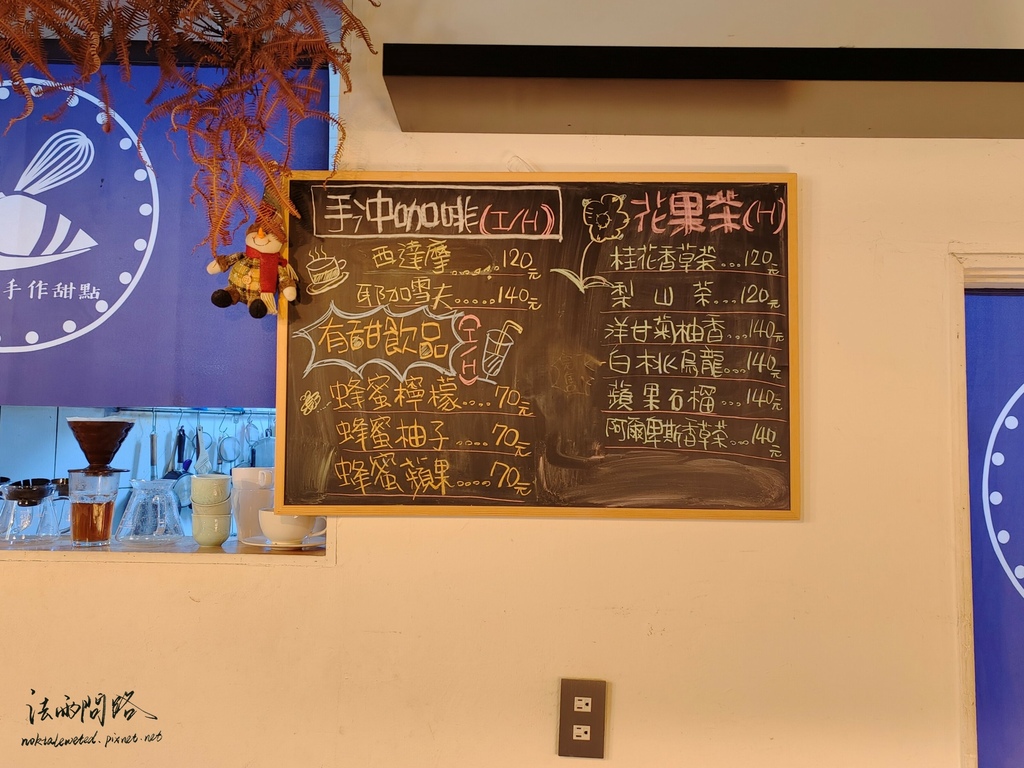 手作甜點
手沖咖啡(I/H)
西達摩......120元
耶加雪夫.....140元
有甜飲品(I/H)
蜂蜜檸檬....70元
蜂蜜柚子....70元
蜂蜜蘋果....70元
花果茶(H)
桂花香草茶...120元
梨山茶...120元
洋甘菊柚香.140元
白桃烏龍...140元
蘋果石榴....140元
阿爾卑斯香草茶...140元
法的問路